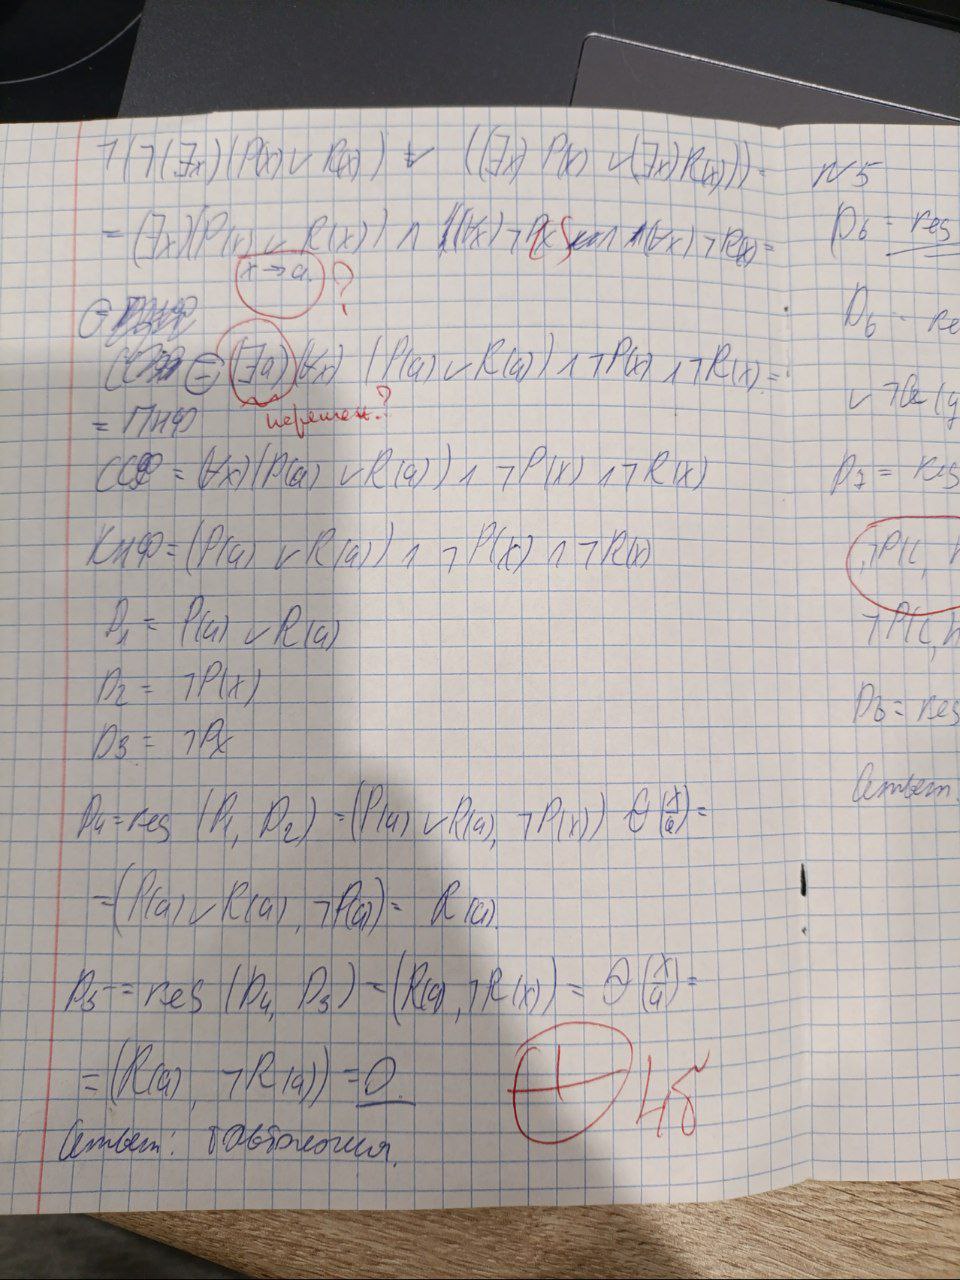 ¬(¬(∃x)(P(x) ∨ R(x)) ∨ ((∃x) P(x) ∨ (∃x) R(x))) =
= (∃x)(P(x) ∨ R(x)) ∧ (∀x) ¬P(x) ∧ (∀x) ¬R(x) =
x → a ?
= (∃a)(∀x) (P(a) ∨ R(a)) ∧ ¬P(x) ∧ ¬R(x) =
= ПНФ
перемен.?
ССФ = (∀x)(P(a) ∨ R(a)) ∧ ¬P(x) ∧ ¬R(x)
КНФ = (P(a) ∨ R(a)) ∧ ¬P(x) ∧ ¬R(x)
D₁ = P(a) ∨ R(a)
D₂ = ¬P(x)
D₃ = ¬Rx
D₄ = res (D₁, D₂) = (P(a) ∨ R(a), ¬P(x)) θ(x/a) =
= (P(a) ∨ R(a), ¬P(a)) = R(a).
D₅ = res (D₄, D₃) = (R(a), ¬R(x)) = θ(x/a) =
= (R(a), ¬R(a)) = 0.
+ 4б
Ответ: тавтология.
N5
D₆ = res
D₆ = re
∨ ¬
D₇ = res
¬P(c,
¬P(c,
D₈ = res
Ответ.